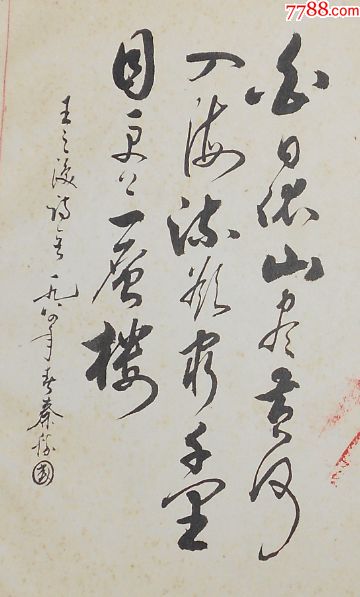 7788.com
白日依山尽黄河
入海流欲穷千里
目更上一层楼
王之涣诗 一九八四年春秦